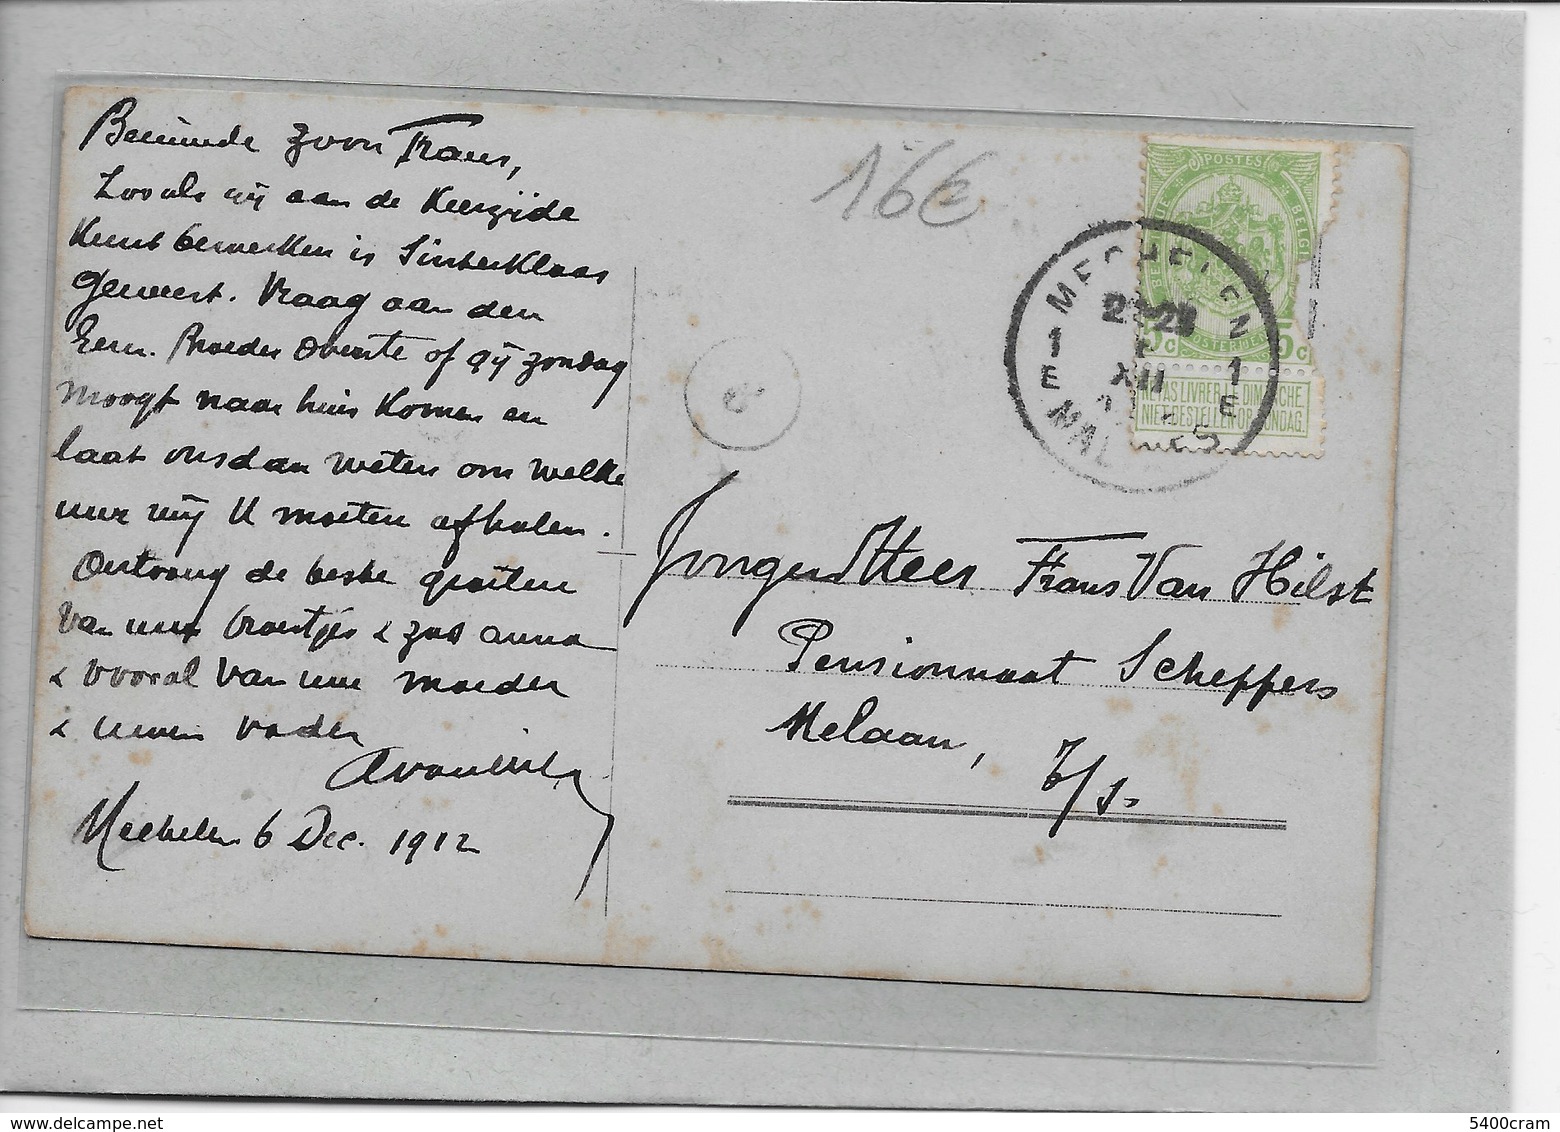 Beminde zoon Frans,
Zooals gij aan de Keerzijde
Kunt bemerken is Sinterklaas
geweest. Vraag aan den
Eerw. Broeder Overste of gij zondag
moogt naar huis Komen en
laat ons dan weten om welke
uur wij U moeten afhalen.
Ontvang de beste groeten
van uwe broertjes & zus anna
& vooral van uwe moeder
& uwen vader
Mechelen 6 Dec. 1912
16€
POSTES
BELGIQUE
5c 5c
NE PAS LIVRER LE DIMANCHE
NIET BESTELLEN OP ZONDAG.
MECHELEN
1 1
E XII E
MALINES
Jongen Heer Frans Van Hilst
Pensionnaat Scheppers
Melaan,
5400cram